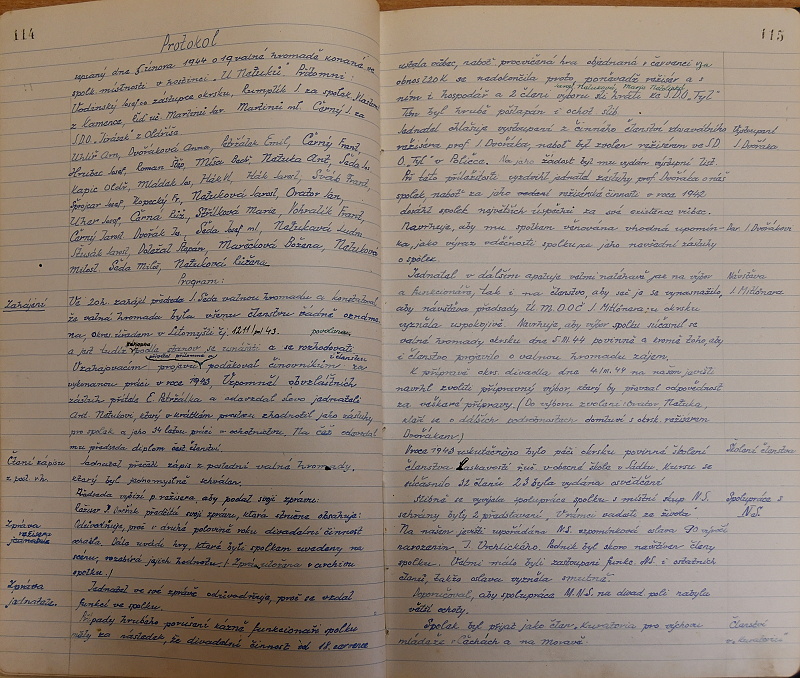 114
Protokol
sepsaný dne 5. února 1944 o 19 valné hromadě konané ve
spolk. místnosti v hostinci „U Natuků“. Přítomni:
Vodinský Josef co zástupce okrsku, za spolek
z Kamence, Martinů ml. Černý J. za
S.D.O. z Oldřiše
Uhlíř Ant, Dvořáková Anna, Petržálek Emil, Černý Frant,
Hrubec Josef, Roman Štěp, Natuka Ant, Šeda
Kapic Oldř, Mládek Jos, Hák Vl, Hák Jarosl,
Josef, Kopecký Fr, Natuková Jarosl, Orator Jan,
Uher Josef, Černá Růž, Marie, Frant,
Černý Jarosl Dvořák Jos, Šeda Josef ml, Natuková Ludm
Jarosl, Doležal Štěpán, Marečková Božena, Natuková
Miloš, Natuková Růžena
Program:
Zahájení
Ve 20h. zahájil předseda J. Šeda valnou hromadu a konstatoval
že valná hromada byla všemu členstvu řádně oznáme-
na, Okres. úřadem v Litomyšli čj. 12111/ 43. povolena
a jest tudíž podle stanov se usnášeti a se rozhodovati
projevu poděkoval činovníkům za
vykonanou práci v roce 1943, Vzpomněl obzvláštních
zásluh přítele E. Petržálka a odevzdal slovo jednateli
Ant. Natukovi, který v krátkém proslovu zhodnotil jeho zásluhy
pro spolek a jeho 34 letou práci v ochotnictvu. Na čas odevzdal
mu předseda diplom čest. členství.
Čtení zápisu
z posl. v. hr.
Jednatel přečetl zápis z poslední valné hromady,
který byl jednomyslně schválen.
Předseda vybízí p. režisera, aby podal svoji zprávu.
Zpráva
režisera
Režiser P. Dvořák předčítá svoji zprávu, která stručně obsahuje:
Odůvodňuje, proč v druhé polovině roku divadelní činnost
ochabla. Dále uvádí hry, které byly spolkem uvedeny na
scénu, rozebírá jejich hodnotu. (Zpráva uložena v archivu
spolku.)
Zpráva
jednatele.
Jednatel ve své zprávě odůvodňuje, proč se vzdal
funkcí ve spolku.
Případy hrubého porušení kázně funkcionářů spolku
měly za následek, že divadelní činnost od 18. července
115
ustala vůbec, neboť procvičená hra objednaná s července za
obnos 220 K se nedokončila proto, poněvadž režisér a s
ním i hospodář a 2 členi výboru šli hráti ku S.D.O. „Tyl“
Natuková, Marie
Tím byl hrubě pošlapán i ochot. slib.
Jednatel ohlašuje vystoupení z činného členstva dosavadního
režiséra prof J. Dvořáka, neboť byl zvolen režisérem ve SD
O. „Tyl“ v Poličce. Na jeho žádost byl mu vydán výstupní list.
Vystoupení
J. Dvořáka
Při této příležitosti vyzdvihl jednatel zásluhy prof. Dvořáka o náš
spolek, neboť za jeho vedení režisérské činnosti v roce 1942
dosáhl spolek největších úspěchů za své existence vůbec.
Navrhuje, aby mu spolkem věnována vhodná upomín-
ka, jako výraz vděčnosti spolku za jeho nevšední zásluhy
o spolek.
Dar J. Dvořákovi
Jednatel v dalším apeluje velmi naléhavě jak na výbor
a funkcionáře, tak i na členstvo, aby šel je vynasnažilo,
aby návštěva předsedy Ú. M. D. O. Č. J. Mitlénera v okrsku
vyzněla uspokojivě. Navrhuje, aby výbor spolku súčastnil se
valné hromady okrsku dne 5. III. 44 povinně a kromě toho, aby
i členstvo projevilo o valnou hromadu zájem.
Návštěva
J. Mitlénera
K přípravě okrs. divadla dne 4. III. 44 na našem jevišti
navrhl zvoliti přípravný výbor, který by převzal odpovědnost
za veškeré přípravy. (Do výboru zvoleni: Orator, Natuka,
kteří se o dalších podrobnostech domluví s okrsk. režisérem
Dvořákem.)
V roce 1943 uskutečněno bylo péčí okrsku povinné školení
členstva Laskavostí říd. v obecné škole v Sádku. Kursu se
súčastnilo 32 členů 23 byla vydána osvědčení
Školení členstva
Slibně se vyvíjela spolupráce spolku s místní skup. N. S.
sehrány byly 2 představení, V rámci radosti ze života.
Na našem jevišti uspořádána N. S. vzpomínková oslava 90 výročí
narozenin J. Vrchlického. Podnik byl skoro nenavštíven členy
spolku. Velmi málo byli zastoupeni funkc. N. S. i ostatních
členů, takže oslava vyzněla smutně.
Doporučoval, aby spolupráce M. N. S. na divad. poli nabyla
větší ochoty.
Spolupráce s
N. S.
Spolek byl přijat jako člen Kuratoria pro výchovu
mládeže v Čechách a na Moravě
Členství
v „Kuratoriu“